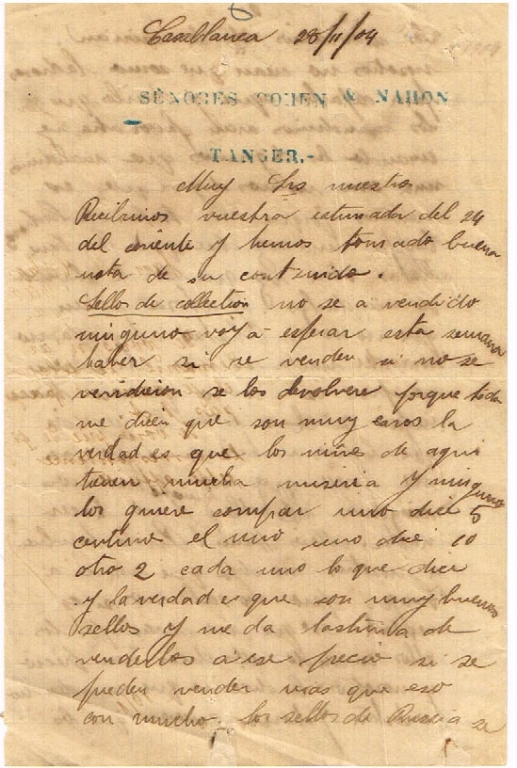 Casablanca 28/11/04
SEÑORES COHEN & NAHON
TANGER.-
Muy Srs nuestros
Recibimos vuestra estimada del 24
del coriente y hemos tomado buena
nota de su contenido.
Sellos de collection no se a vendido
ninguno voy a esperar esta semana
haber si se venden si no se
vendieron se los devolvere porque todos
me dicen que son muy caros la
verdad es que los niños de aqui
tienen mucha miseria y ninguno
los quiere comprar uno dice 5
centimo el uno uno dice 10
otro 2 cada uno lo que dice
y la verdad es que son muy buenos
sellos y me da lastima de
venderlos a ese precio si se
pueden vender mas que eso
con mucho. Los sellos de Russia se